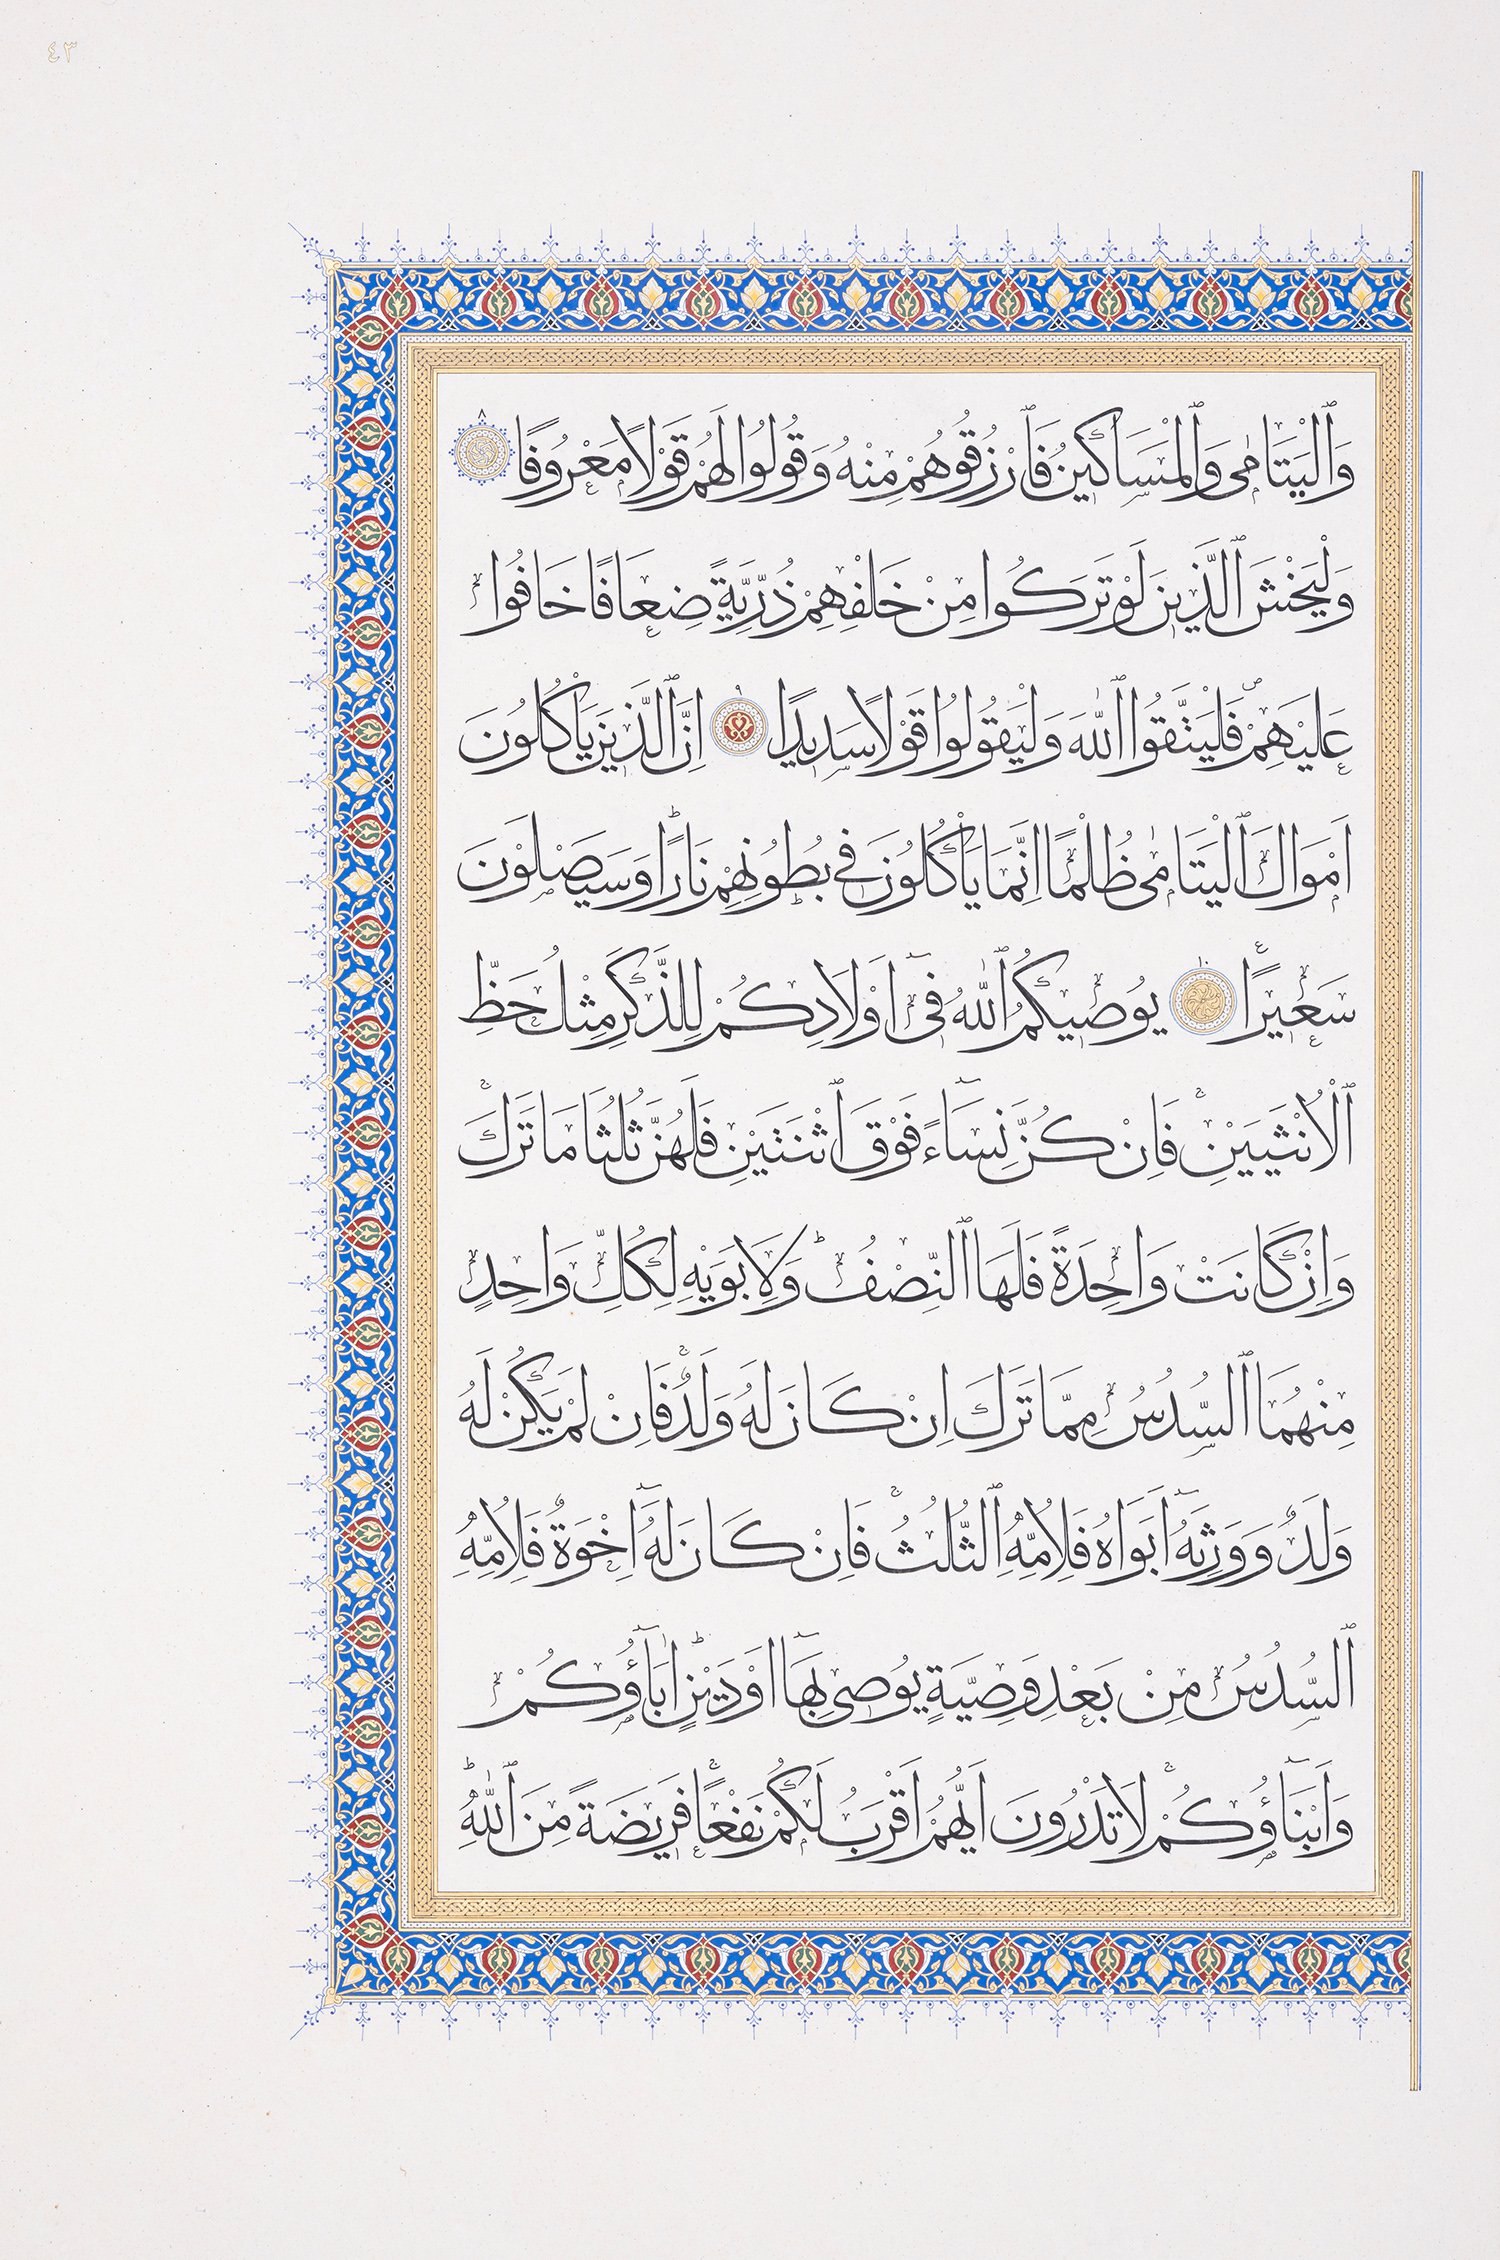 ٤٣
وَٱلْيَتَامٰى وَٱلْمَسَاكٖينُ فَٱرْزُقُوهُمْ مِنْهُ وَقُولُوا لَهُمْ قَوْلًا مَعْرُوفًا ٨
وَلْيَخْشَ ٱلَّذٖينَ لَوْ تَرَكُوا مِنْ خَلْفِهِمْ ذُرِّيَّةً ضِعَافًا خَافُوا
عَلَيْهِمْ فَلْيَتَّقُوا ٱللّٰهَ وَلْيَقُولُوا قَوْلًا سَدٖيدًا ٩ اِنَّ ٱلَّذٖينَ يَأْكُلُونَ
اَمْوَالَ ٱلْيَتَامٰى ظُلْمًا اِنَّمَا يَأْكُلُونَ فٖى بُطُونِهِمْ نَارًاؕ وَسَيَصْلَوْنَ
سَعٖيرًاࣖ ١٠ يُوصٖيكُمُ ٱللّٰهُ فٖٓى اَوْلَادِكُمْ لِلذَّكَرِ مِثْلُ حَظِّ
ٱلْاُنْثَيَيْنِۚ فَاِنْ كُنَّ نِسَٓاءً فَوْقَ ٱثْنَتَيْنِ فَلَهُنَّ ثُلُثَا مَا تَرَكَۚ
وَاِنْ كَانَتْ وَاحِدَةً فَلَهَا ٱلنِّصْفُؕ وَلِاَبَوَيْهِ لِكُلِّ وَاحِدٍ
مِنْهُمَا ٱلسُّدُسُ مِمَّا تَرَكَ اِنْ كَانَ لَهُ وَلَدٌۚ فَاِنْ لَمْ يَكُنْ لَهُ
وَلَدٌ وَوَرِثَهُٓ اَبَوَاهُ فَلِاُمِّهِ ٱلثُّلُثُۚ فَاِنْ كَانَ لَهُٓ اِخْوَةٌ فَلِاُمِّهِ
ٱلسُّدُسُ مِنْ بَعْدِ وَصِيَّةٍ يُوصٖى بِهَٓا اَوْ دَيْنٍؕ اٰبَٓاؤُكُمْ
وَاَبْنَٓاؤُكُمْۚ لَا تَدْرُونَ اَيُّهُمْ اَقْرَبُ لَكُمْ نَفْعًاۚ فَرٖيضَةً مِنَ ٱللّٰهِؕ